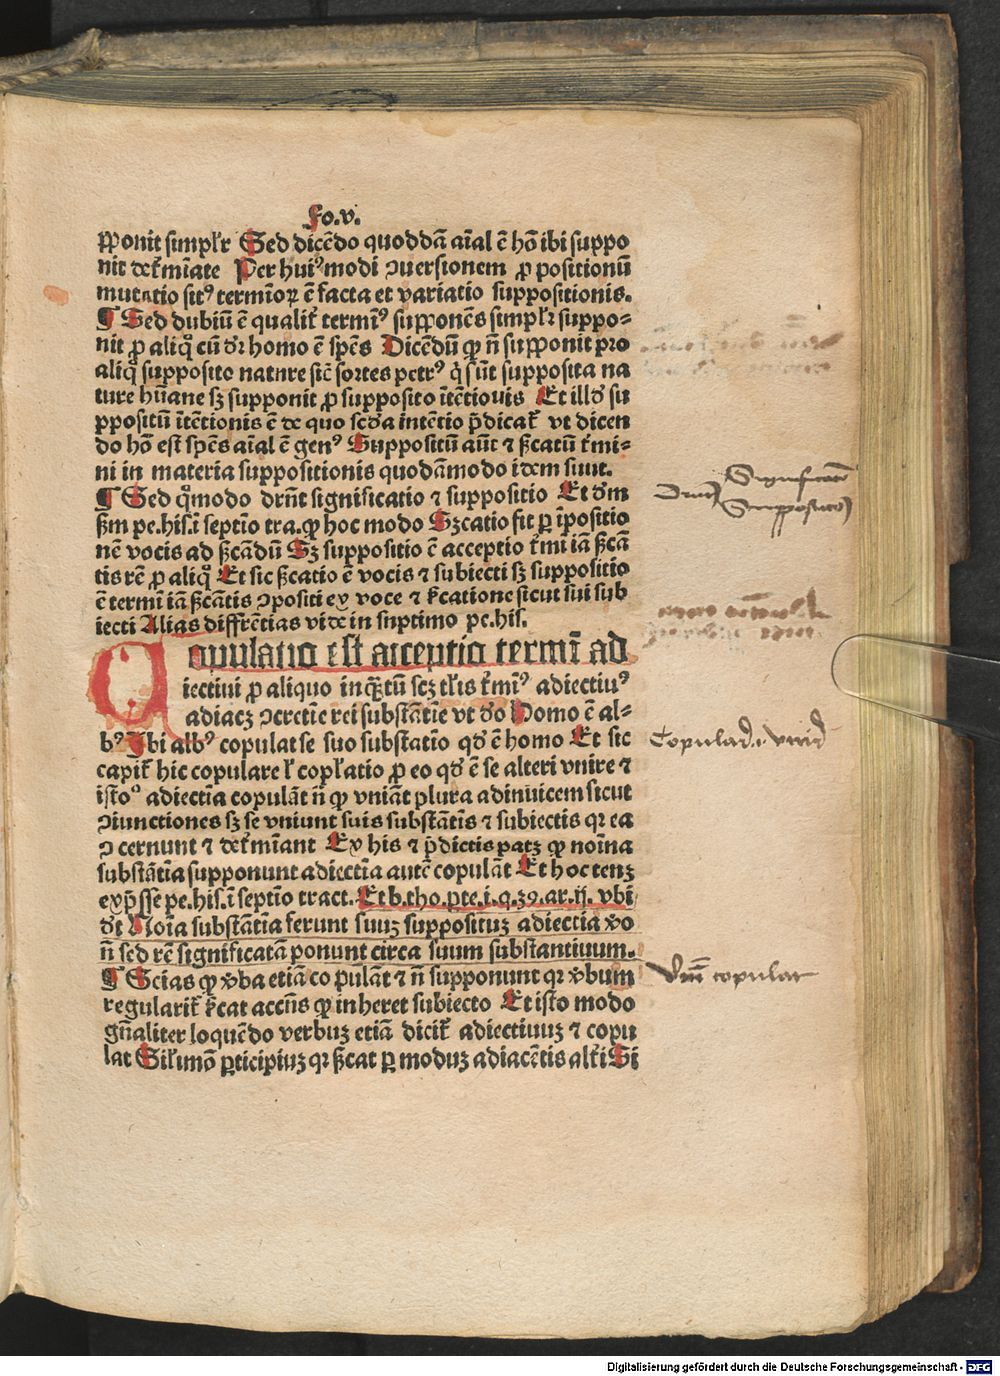 Fo.v.
ꝓponit simpłr Sed dicẽdo quoddã aĩal ẽ hõ ibi suppo
nit deẗmĩate Per huiꝰmodi ꝯuersionem ꝓpositionũ
mutatio sitꝰ termĩoꝝ ẽ facta et variatio suppositionis.
¶ Sed dubiũ ẽ qualiť termĩꝰ supponẽs simpłr suppo⸗
nit ꝓ aliqͦ cũ dr̄ homo ẽ spẽs Dicẽdũ ꝙ ñ supponit pro
aliqͦ supposito nature sič sortes petrꝰ q̇ sũt supposita na
ture hũane sꝫ supponit ꝓ supposito ĩtẽtiouis Et illđ su
ppositũ ĩtẽtionis ẽ de quo scđa intẽtio p̃dicať vt dicen
do hõ est spẽs aĩal ẽ genꝰ Suppositũ aũt ⁊ ßcatũ ťmi⸗
ni in materia suppositionis quodãmodo idem sunt.
¶ Sed q̃modo drñt significatio ⁊ suppositio Et đm
ßm pe.his.ĩ septĩo tra.ꝙ hoc modo Sꝫcatio fit ꝑ ĩpositio
nẽ vocis ad ßcãdũ Sꝫ suppositio ẽ acceptio ťmĩ iã ßcã
tis rẽ ꝓ aliqͦ Et sic ßcatio ẽ vocis ⁊ subiecti sꝫ suppositio
ẽ termĩ iã ßcãtis ꝯpositi ex voce ⁊ ßcatione sicut sui sub
iecti Alias diffrẽtias vide in suptimo pe.his.
Copulatio est acceptio termĩ ad
iectiui ꝓ aliquo inq̃tũ scꝫ tłis ťmĩꝰ adiectiuꝰ
adiacꝫ ꝯcretiẽ rei substãtiẽ vt đo Homo ẽ al⸗
bꝰ Ibi albꝰ copulat se suo substãtio qđ ẽ homo Et sic
capiť hic copulare ł copłatio ꝓ eo qđ ẽ se alteri vnire ⁊
istoᵒ adiectĩa copulãt ñ ꝙ vniãt plura adinuicem sicut
ꝯiunctiones sꝫ se vniunt suis substãtĩs ⁊ subiectis qꝛ ea
ꝯcernunt ⁊ deťmĩant Ex his ⁊ p̃dictis patꝫ ꝙ noĩna
substãtĩa supponunt adiectĩa autẽ copulãt Et hoc tenꝫ
exp̃sse pe.his.ĩ septĩo tract. Et b.tho.ꝑte.i.q.39.ar.ij. vbi
đt Noĩa substãtĩa ferunt suuꝫ suppositũꝫ adiectĩa ꝟo
ñ sed rẽ significatã ponunt circa suum substantiuum.
¶ Scias ꝙ ꝟba etiã copulãt ⁊ ñ supponunt qꝛ ꝟbum
regulariť ßcat accñs ꝙ inheret subiecto Et isto modo
gñaliter loquẽdo verbuꝫ etiã diciť adiectiuuꝫ ⁊ copu
lat Siłr mõ ꝑticipiuꝫ qꝛ ßcat ꝑ moduꝫ adiacẽtis alťi Si
Significatio
Suppositio
Copulare .i. vnire
Verbũ copulat
Digitalisierung gefördert durch die Deutsche Forschungsgemeinschaft - DFG